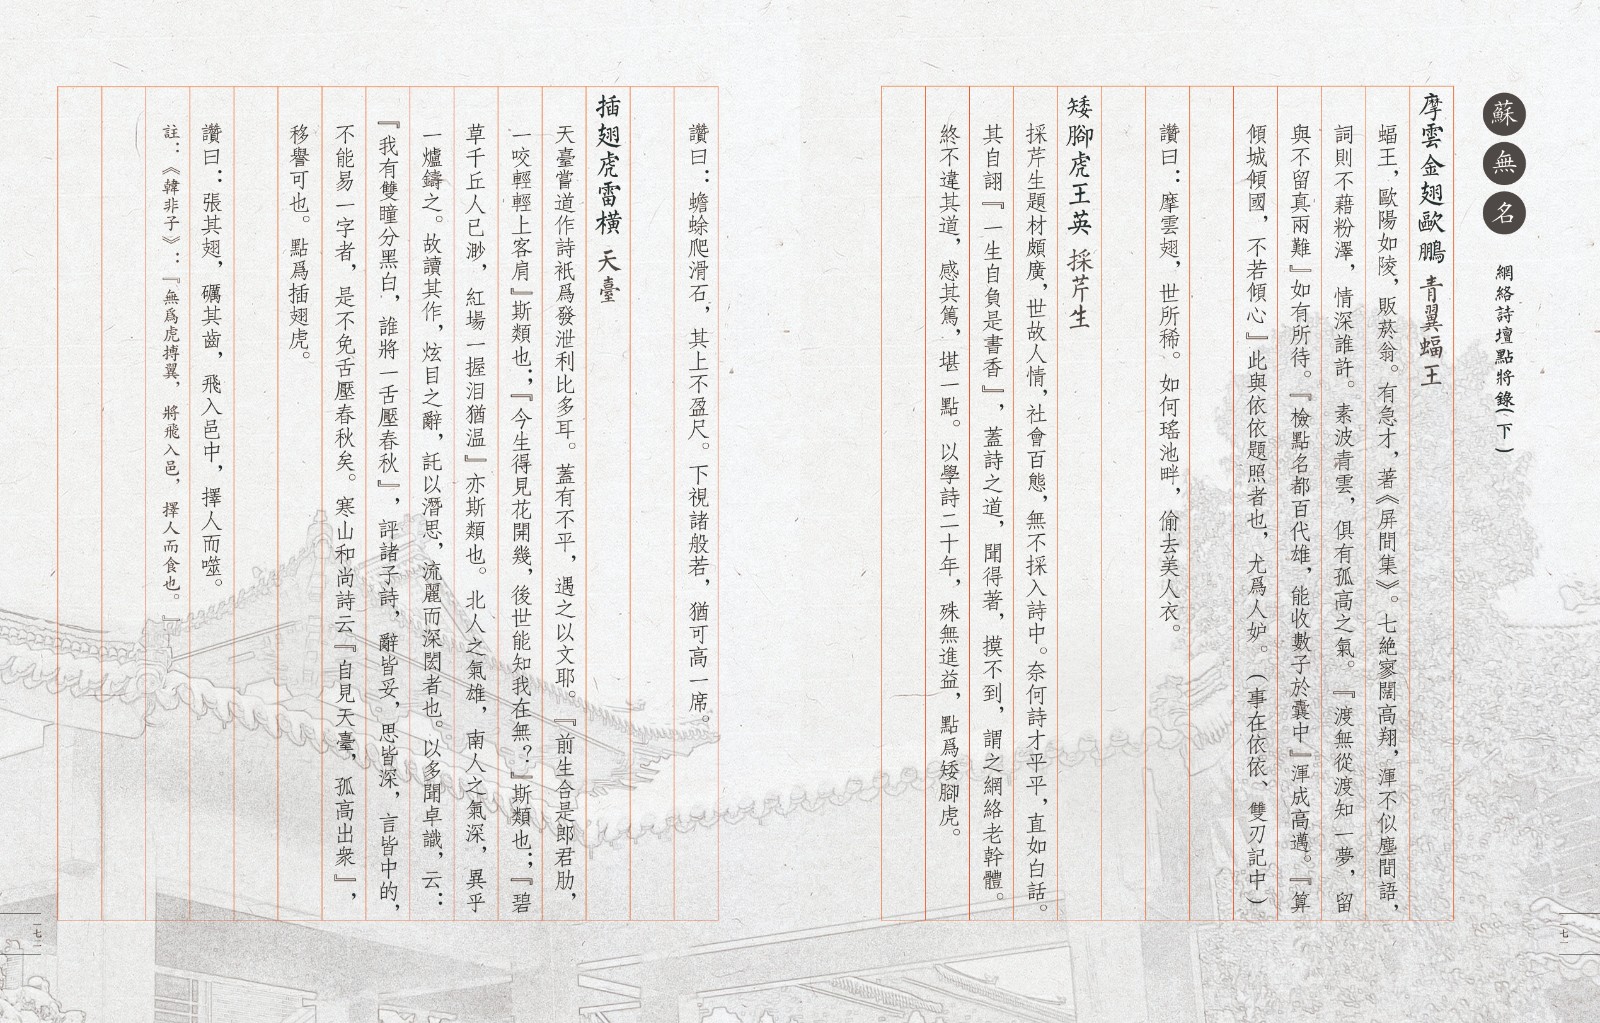 蘇無名
網絡詩壇點將錄(下)
摩雲金翅歐鵬 青翼蝠王
蝠王，歐陽如陵，販菸翁。有急才，著《屏間集》。七絶寥闊高翔，渾不似塵間語，
詞則不藉粉澤，情深誰許。素波青雲，俱有孤高之氣。『渡無從渡知一夢，留
與不留真兩難』如有所待。『檢點名都百代雄，能收數子於囊中』渾成高邁。『算
傾城傾國，不若傾心』此與依依依題照者也，尤爲人妒。(事在依依、雙刃記中)
讚曰：摩雲翅，世所稀。如何瑤池畔，偷去美人衣。
矮腳虎王英 採芹生
採芹生題材頗廣，世故人情，社會百態，無不採入詩中。奈何詩才平平，直如白話。
其自詡『一生自負是書香』，蓋詩之道，聞得著，摸不到，謂之網絡老幹體。
終不違其道，感其篤，堪一點。以學詩二十年，殊無進益，點爲矮腳虎。
一七一
讚曰：蟾蜍爬滑石，其上不盈尺。下視諸般若，猶可高一席。
插翅虎雷橫 天臺
天臺嘗道作詩祇爲發泄利比多耳。蓋有不平，遇之以文耶。『前生合是郎君肋，
一咬輕輕上客肩』斯類也；『今生得見花開幾，後世能知我在無？』斯類也；『碧
草千丘人已渺，紅場一握泪猶温』亦斯類也。北人之氣雄，南人之氣深，異乎
一爐鑄之。故讀其作，炫目之辭，託以潛思，流麗而深閎者也。以多聞卓識，云：
『我有雙瞳分黑白，誰將一舌壓春秋』，評諸子詩，辭皆妥，思皆深，言皆中的，
不能易一字者，是不免舌壓春秋矣。寒山和尚詩云『自見天臺，孤高出衆』，
移譽可也。點爲插翅虎。
讚曰：張其翅，礪其齒，飛入邑中，擇人而噬。
註：《韓非子》：『無爲虎搏翼，將飛入邑，擇人而食也。』
一七二